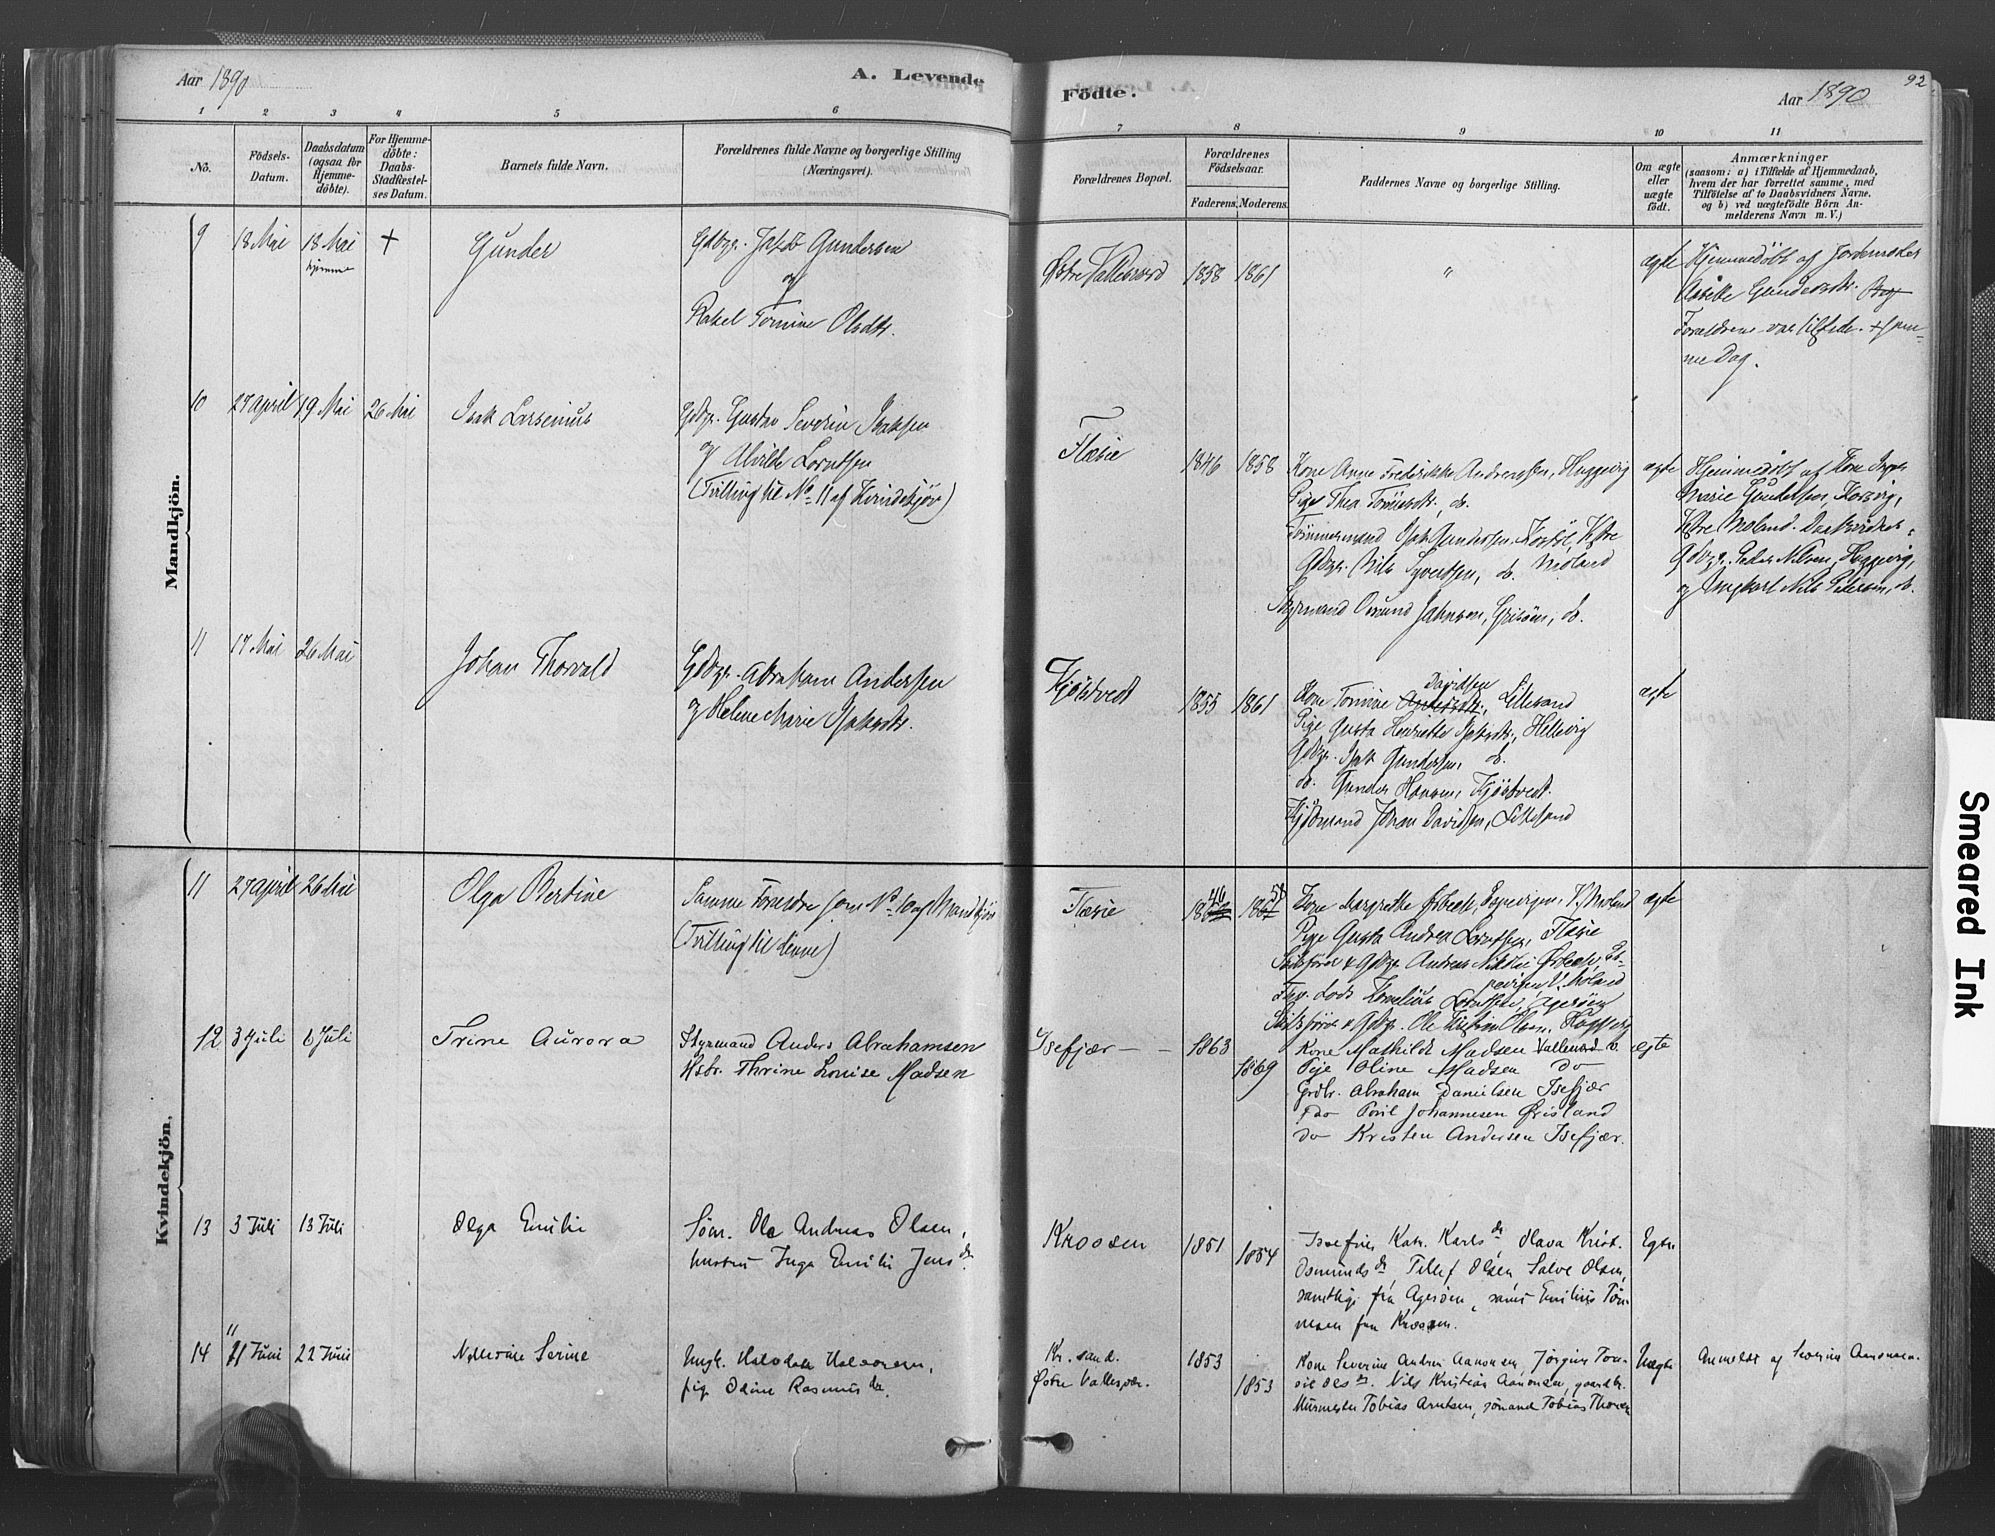 Aar 1890
A. Levende
Födte.
Aar 1890
92
1 2 3 4 5 6 7 8 9 10 11
No.
Födsels-
Datum.
Daabsdatum
(ogsaa for
Hjemme-
döbte).
For Hjemme-
döbte:
Daabs-
Stadfæstel-
ses Datum.
Barnets fulde Navn.
Forældrenes fulde Navne og borgerlige Stilling
(Næringsvei).
Forældrenes Bopæl.
Forældrenes
Födselsaar.
Faderens. Moderens.
Faddernes Navne og borgerlige Stilling.
Om ægte
eller
uægte
födt.
Anmærkninger
(saasom: a) i Tilfælde af Hjemmedaab,
hvem der har forrettet samme, med
Tilföielse af to Daabsvidners Navne,
og b) ved uægtefödte Börn An-
melderens Navn m. V.)
Mandkjön.
9 18 Mai 18 Mai +
hjemme
Gunder
Gdbgr. Jakob Gundersen
og
Rakel Tomine Olsdtr.
Østre Vallesværd 1858 1861 " ægte
Hjemmedöbt af Jordemoder
Gundersdtr.
Forældrene var tilstede. + sam-
me Dag.
10 27 April 19 Mai 26 Mai
Isak Larsenius
Gdbgr. Gustav Severin Isaksen
og Alvilde Lorntsen
(Tvilling til No 11 af Kvindekjön)
Flæsie 1846 1858
Kone Anne Fredrikke Andreassen, Hæggevig ægte
Pige Thea Tönnesdtr, do.
Tömmermand Isak Gundersen, V. Moland
Gdbgr. Nils Syvertsen, do.
Styrmand Osmund Jahnsen, Grisöen, do.
Hjemmedöbt af Kone Inger
Marie Gundersen, Korsvig,
V. Moland. Daabsvidner:
Gdbgr. Peder Nilsen, Hæggevig,
og Ungkarl Nils Pedersen, do.
11 17 Mai 26 Mai
Johan Thorvald
Gdbgr. Abraham Andersen
og Helene Marie Isaksdtr.
Kjöstvedt 1855 1861
Davidsen
Kone Tomine Andersdtr, Lillesand ægte
Pige Gusta Henriette Isaksdtr, Hellevig
Gdbgr. Isak Gundersen, do.
do. Gunder Hansen, Kjöstvedt
Kjöbmand Johan Davidsen, Lillesand
Kvindekjön.
11 27 April 26 Mai
Olga Bertine
Samme Forældre som No 10 af Mandkjön
(Tvilling til denne)
Flæsie 1846 1858
Kone Margrethe Ørbech, V. Moland ægte
Pige Gusta Andrea Lorntsen, Flæsie
Skibsförer & Gdbgr. Andreas Nikolai Ørbech,
V. Moland
Lods Kornelius Lorntsen, Ageröen
Skibsförer & Gdbgr. Ole Kristian Olsen, Hæggevig
12 3 Juli 6 Juli
Trine Aurora
Styrmand Anders Abrahamsen
Hstr. Thrine Louise Madsen
Isefjær 1863
1869
Kone Mathilde Madsen Vallesværd ø. ægte
Pige Oline Madsen do
Grdbr. Abraham Danielsen Isefjær
do Poul Johannesen Ørisland
do Kristen Andersen Isefjær.
13 3 Juli 13 Juli
Olga Emilie
Sömd. Ole Andreas Olsen,
hustru Inga Emilie Jensdr.
Kroosen 1851
1854
Josefine Kat. Karlsdr, Olava Krist. Egte
Osmundsdr Tellef Olsen Salve Olsen,
samtlige fra Ageröen, samt Emilius Tön-
nesen fra Kroosen.
14 11 Juni 22 Juni
Serine
Ungk. Halvdan Halvorsen,
pig. Oline Rasmusdr.
Kr.sand.
Østre Vallesvær. 1853
1853
Kone Severine Andrea Aanonsen, Jörgine Tom- Uægte
ine Olsdr. Nils Kristian Aanonsen, gaardbr.
Murmester Tobias Arntsen, sömand Tobias Thorsen
Anmeldt af Severine Aanonsen.
Smeared Ink